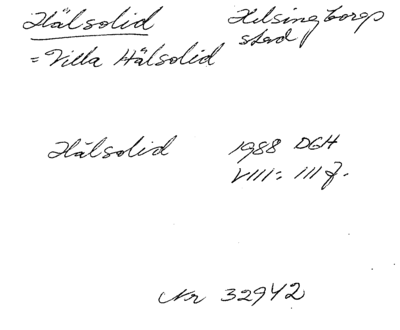 Hälsolid Helsingborgs
stad
= Villa Hälsolid
Hälsolid 1988 DGH
VIII: 111 f.
Nr 32942